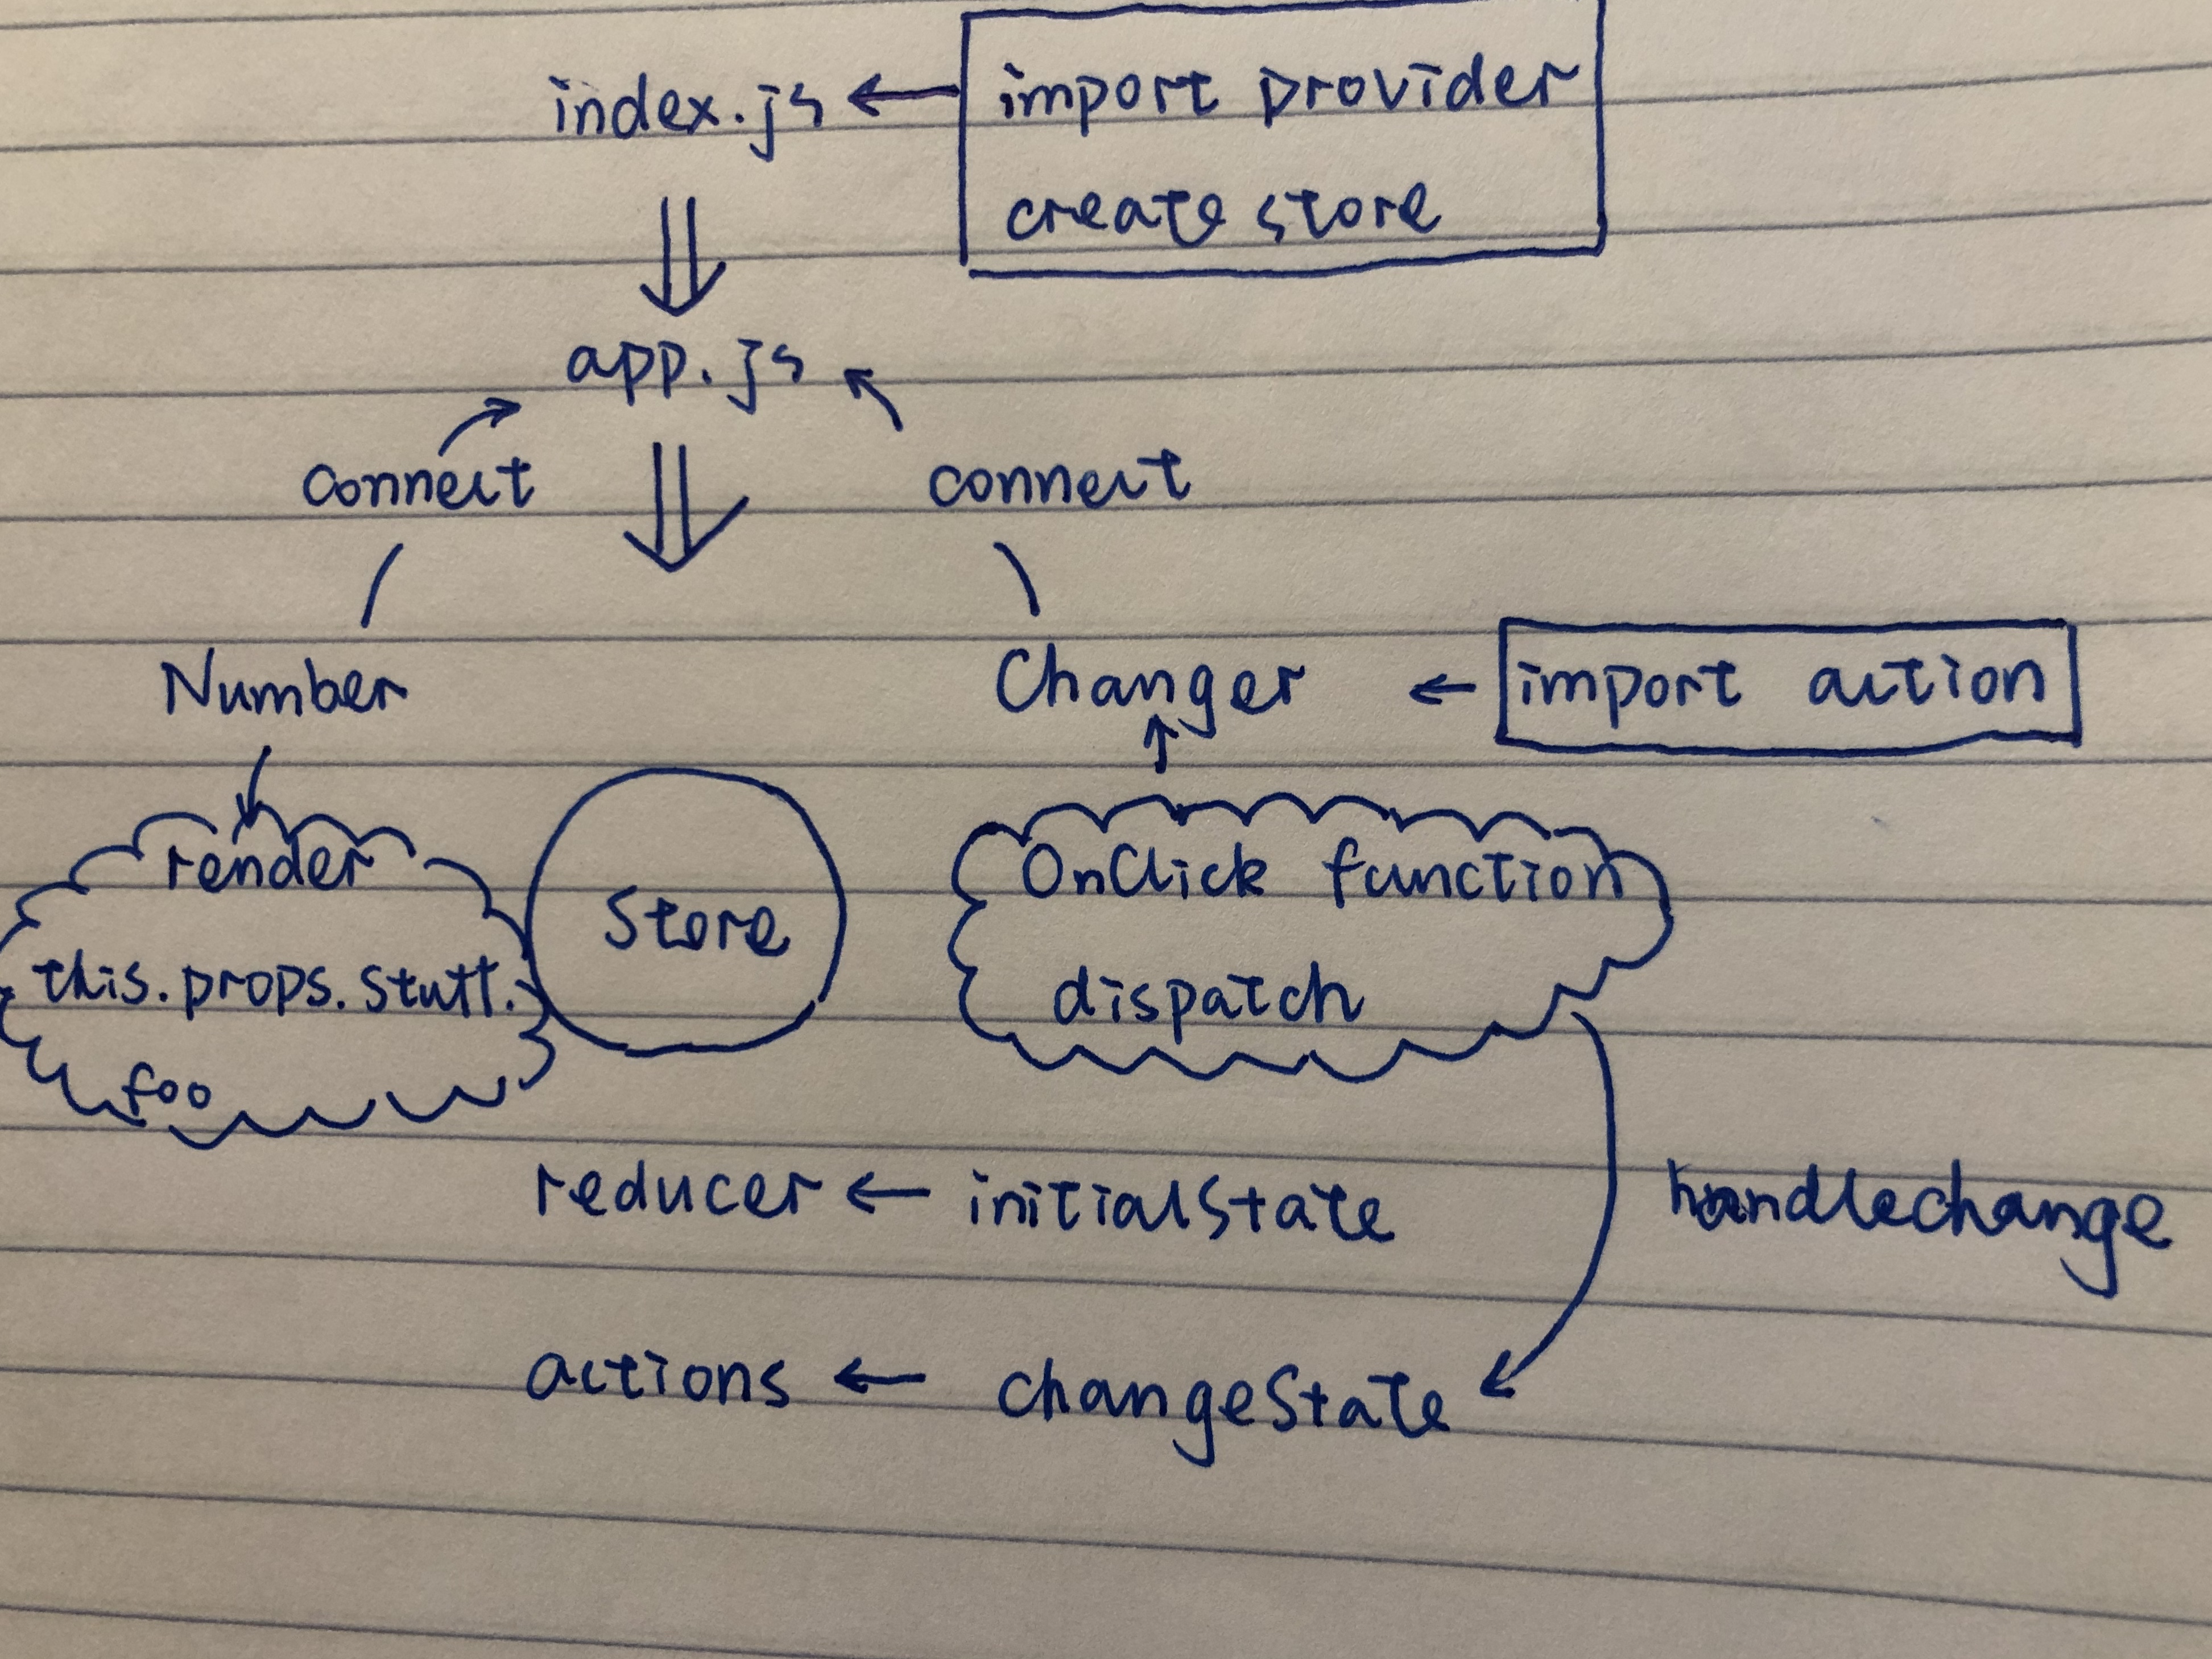 index.js ← import provider
create store
app.js
connect
connect
Number
Changer ← import action
render
this.props.stuff.
foo
Store
OnClick function
dispatch
reducer ← initialState
handlechange
actions ← changeState